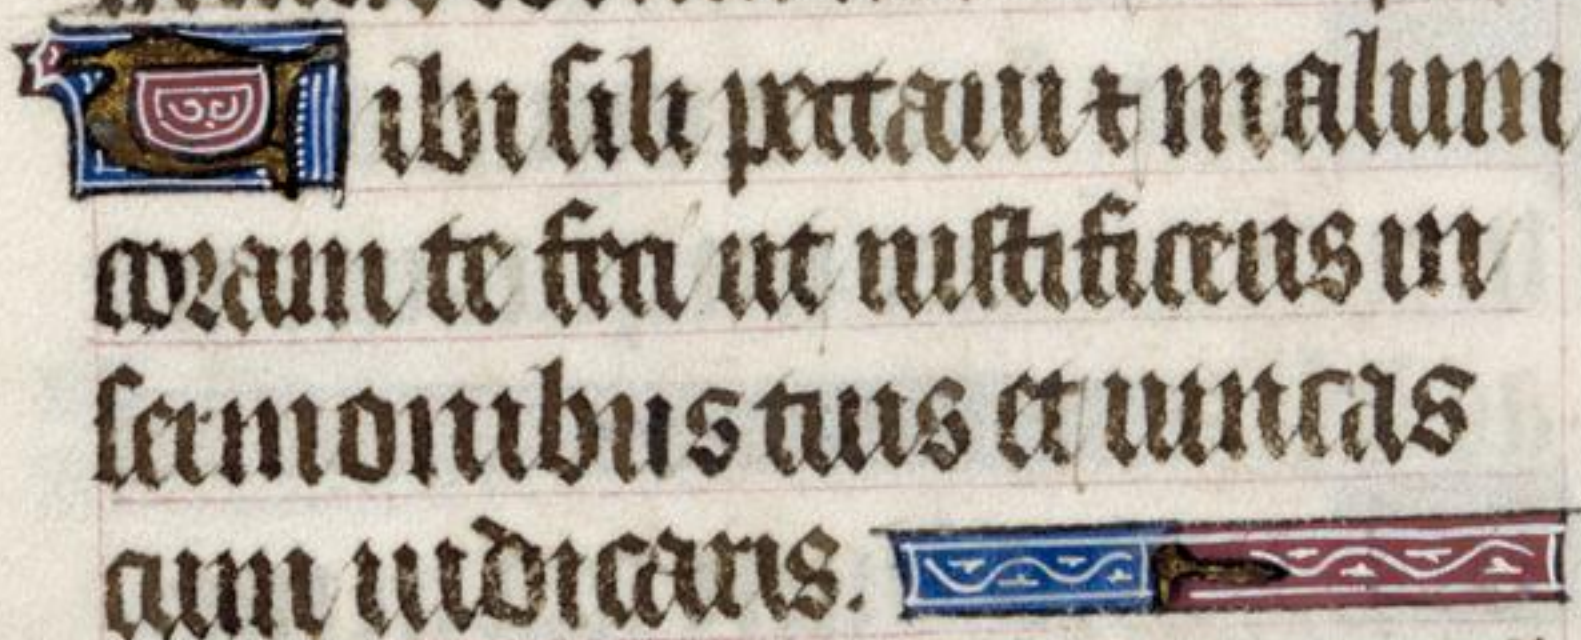 Tibi soli peccaui ⁊ malum
coram te feci ut iustificeris in
sermonibus tuis et uincas
cum iudicaris.